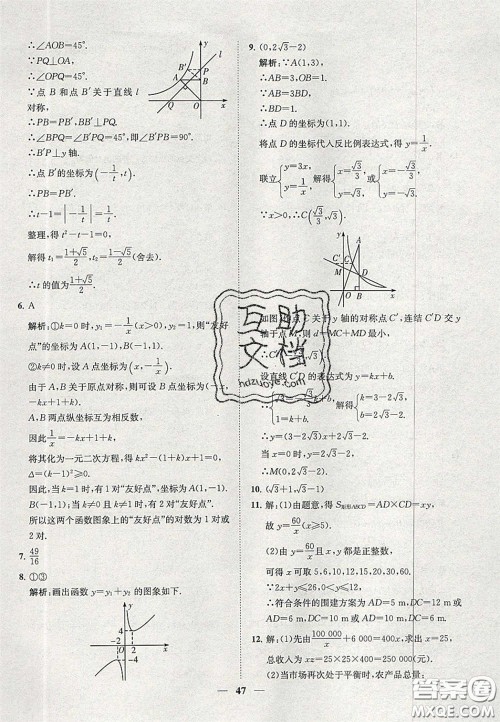 ∴∠AOB=45°.
∵PQ⊥OA,
∴∠OPQ=45°.
∵点 B 和点 B′关于直线 l
对称,
∴PB=PB′,BQ=B′Q.
∴∠BPQ=∠B′PQ=45°,即∠B′PB=90°.
∴B′P⊥y 轴.
∴点 B′的坐标为(-1/t,t).
∵PB=PB′.
∴t-1=|-1/t|=1/t.
整理,得 t²-t-1=0.
解得 t₁=(1+√5)/2,t₂=(1-√5)/2(舍去).
∴t 的值为(1+√5)/2.
6. A
解析:①k=0 时,y₁=-1/x(x>0),y₁=1,则“友好
点”的坐标为 A(1,-1),B(-1,1).
②k≠0 时,设 A(x,-1/x).
由于 A、B 关于原点对称,则可设 B 点坐标为(-x,
-kx+1+k).
A、B 两点纵坐标互为相反数,
因此1/x=-kx+1+k,
将其化为一元二次方程,得 kx²-(1+k)x+1=0,
Δ=(1-k)²≥0.
因此,当 k=1 时,有 1 对“友好点”,坐标为 A(1,-1),
B(-1,1).当 k≠1 且 k≠0时,有 2 对“友好点”.
所以这两个函数图象上的“友好点”的对数为 1 对或
2 对.
7. 49/16
8. ①③
解析:画出函数 y=y₁+y₂ 的图象如下.
9. (0,2√3-2)
解析:∵A(1,3),
∴AB=3,OB=1.
∵AB=3BD,
∴BD=1.
∴点 D 的坐标为(1,1).
将点 D 的坐标代入反比例表达式,得 y=1/x.
联立{y=3x, y=1/x. 解得{x=√3/3, y=√3 或{x=-√3/3, y=-√3.
∵x>0,∴C(√3/3,√3).
轴于点 M,则 d=MC+MD 最小.
设直线 C′D 的表达式为 y=kx+b.
解得{k=3-2√3, b=2√3-2.
∴y=(3-2√3)x+2√3-2.
当 x=0 时,y=2√3-2.
∴M(0,2√3-2).
10. (4)
11. 解:(1)由题意,得 S矩形ABCD=AD×CD=xy,
故 y=60/x(x≥5).
(2)由 y=60/x,且 x、y 都是正整数,
可得 x 可取 5,6,10,12,15,20,30,60.
∵2x+y≤26,0<y≤12,
∴符合条件的围建方案为 AD=5 m,DC=12 m 或
AD=6 m,DC=10 m 或 AD=10 m,DC=6 m.
12. 解:(1)先由100 000/x+6 000=400x,求出 x=25,
总收入为 xz=25×25×400=250 000(元).
(2)当市场再次处于平衡时,农产品总量
47
互助文档
hdzuoye.com
答案圈
MXQE.COM